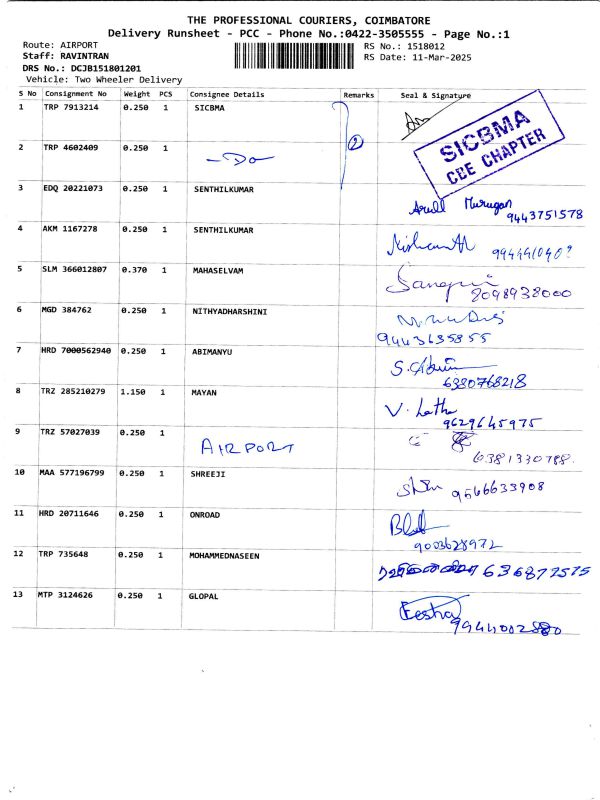 THE PROFESSIONAL COURIERS, COIMBATORE
Delivery Runsheet - PCC - Phone No.:0422-3505555 - Page No.:1
Route: AIRPORT RS No.: 1518012
Staff: RAVINTRAN RS Date: 11-Mar-2025
DRS No.: DCJB151801201
Vehicle: Two Wheeler Delivery
S No Consignment No Weight PCS Consignee Details Remarks Seal & Signature
1 TRP 7913214 0.250 1 SICBMA
SICBMA
CBE CHAPTER
2 TRP 4602409 0.250 1 -Do- 2
3 EDQ 20221073 0.250 1 SENTHILKUMAR Arull Murugan
9443751578
4 AKM 1167278 0.250 1 SENTHILKUMAR
5 SLM 366012807 0.370 1 MAHASELVAM
8098938000
6 MGD 384762 0.250 1 NITHYADHARSHINI
9443635855
7 HRD 7000562940 0.250 1 ABIMANYU
6380768218
8 TRZ 285210279 1.150 1 MAYAN V. Latha
9629645975
9 TRZ 57027039 0.250 1 AIRPORT
6381330788
10 MAA 577196799 0.250 1 SHREEJI 9566633908
11 HRD 20711646 0.250 1 ONROAD
9003628972
12 TRP 735648 0.250 1 MOHAMMEDNASEEN
13 MTP 3124626 0.250 1 GLOPAL